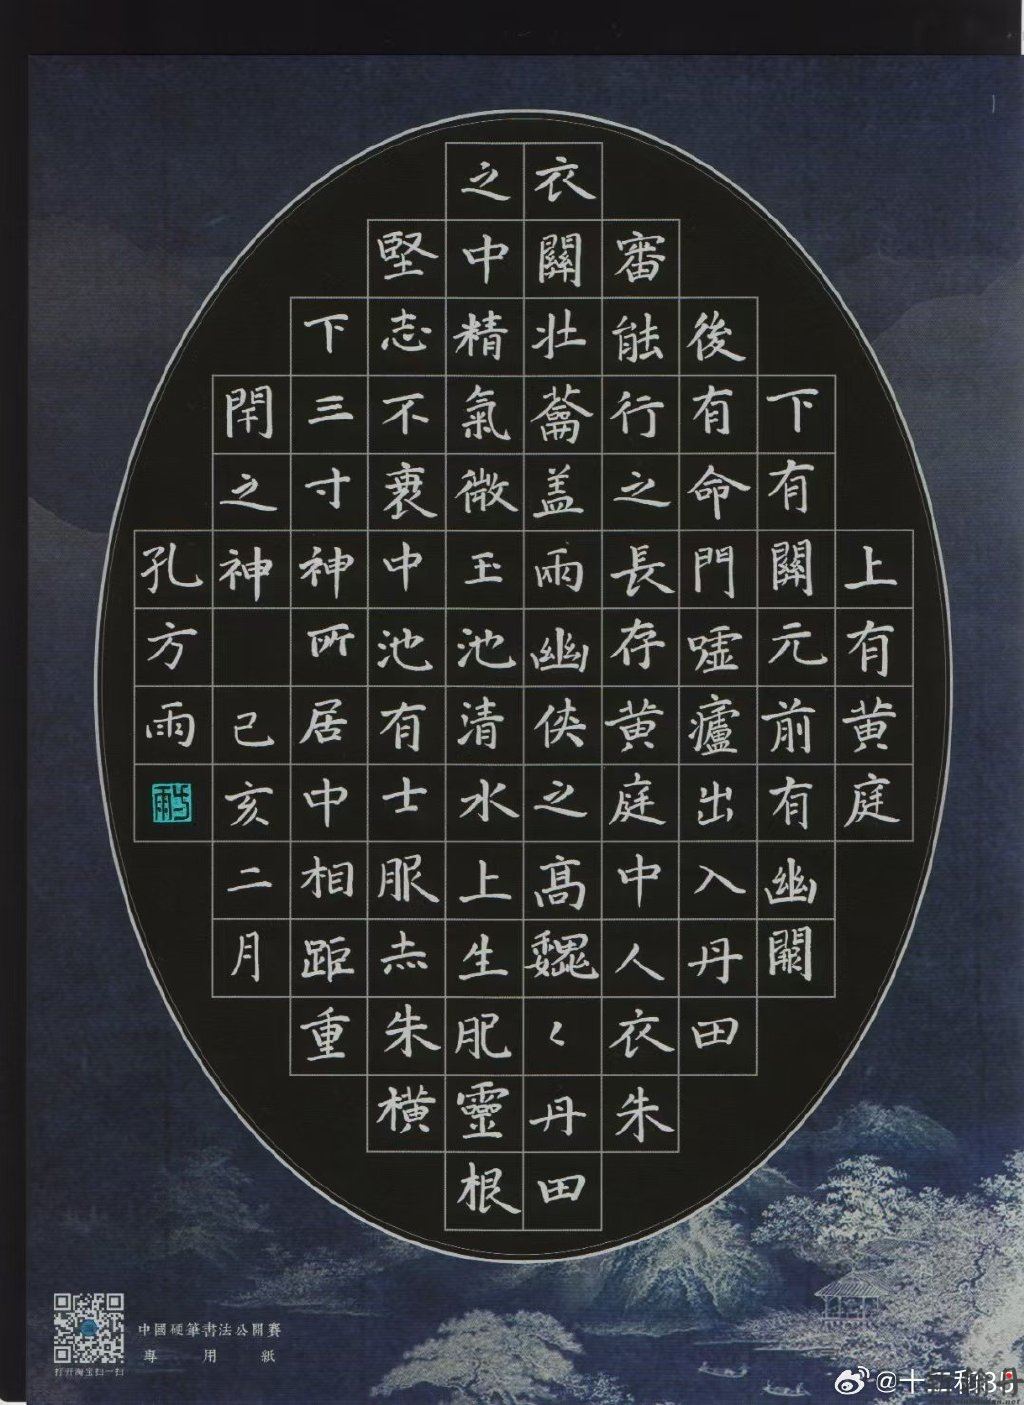 上有黄庭
下有關元前有幽闕
後有命門噓廬出入丹田
審能行之長存黄庭中人衣朱
衣關壮蘥盖兩幽俠之髙魏〻丹田
之中精氣微玉池清水上生肥靈根
堅志不衰中池有士服赤朱橫
下三寸神所居中相距重
閇之神 己亥二月
孔方雨
中國硬筆書法公開賽
專用紙
打开淘宝扫一扫